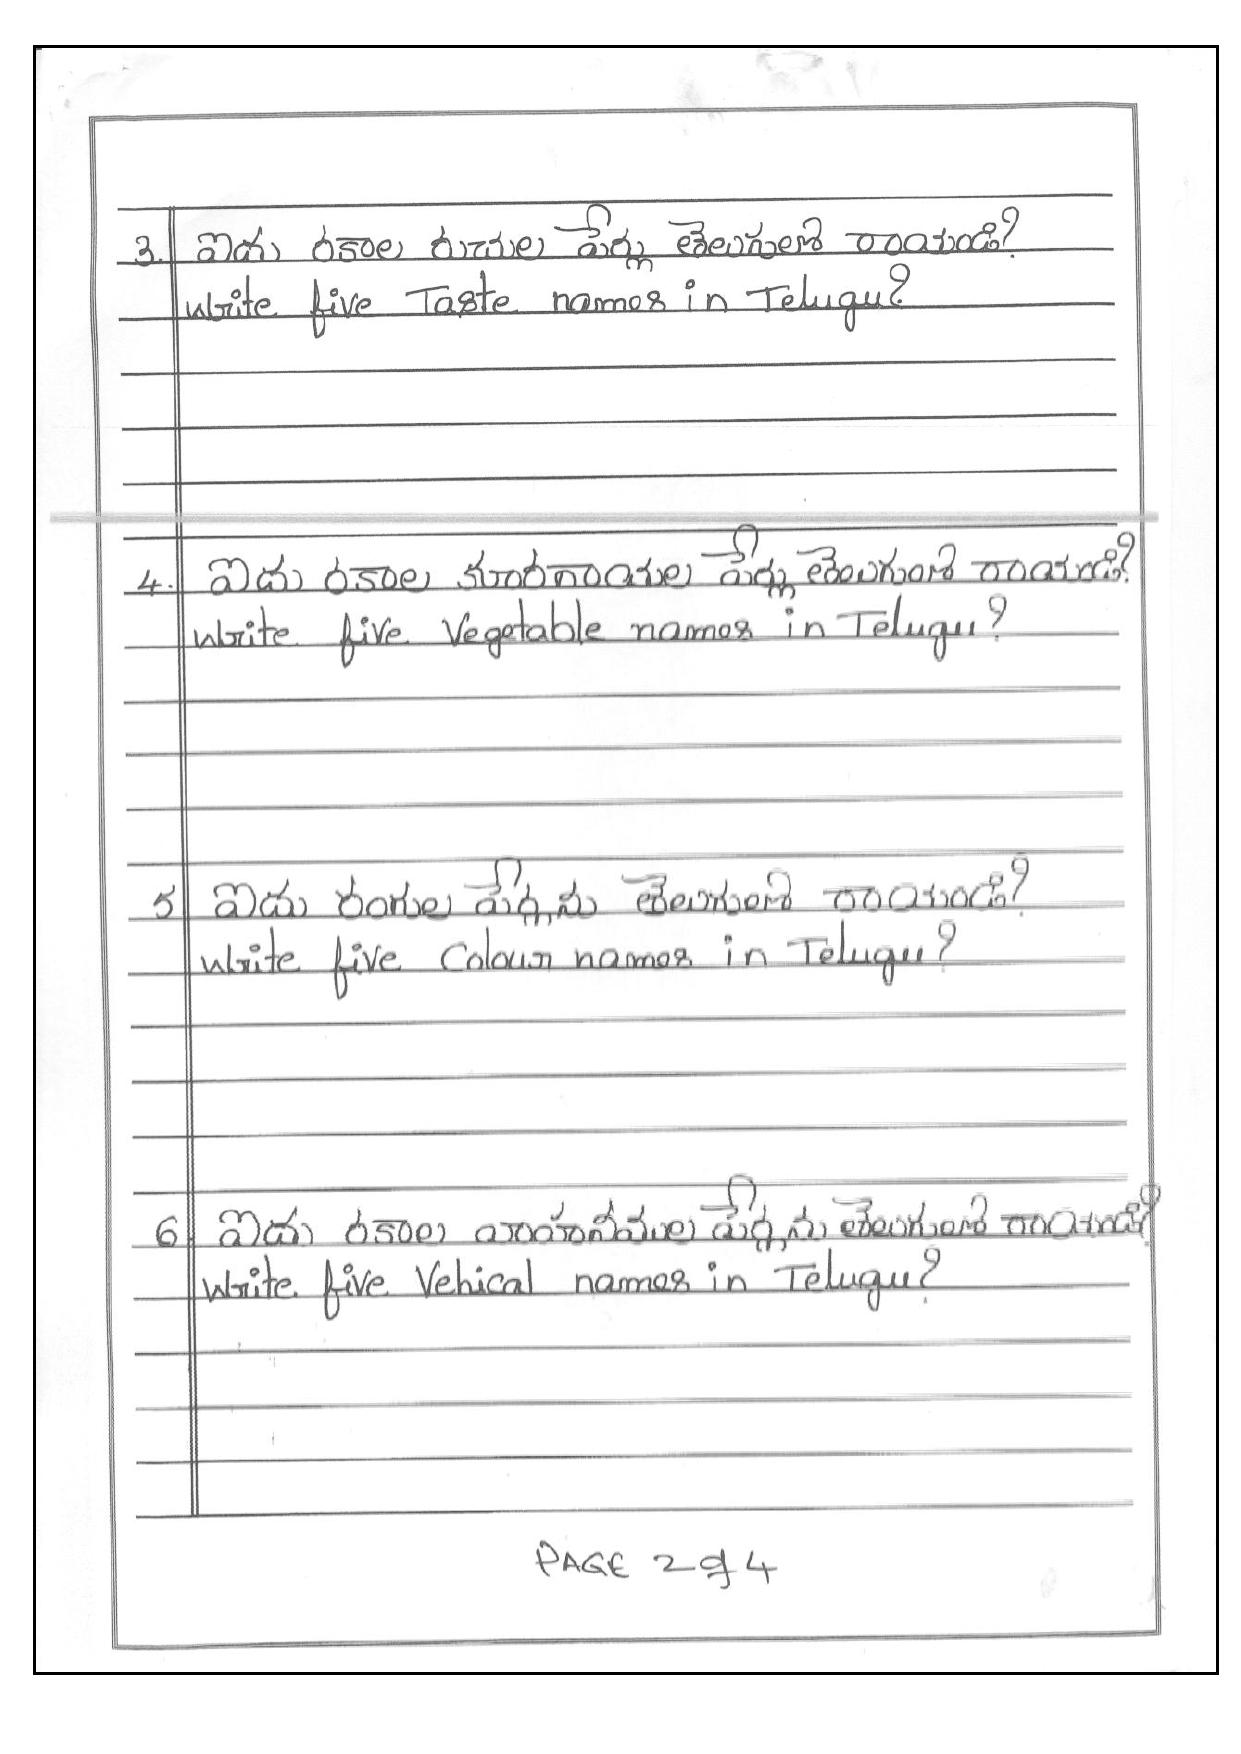 3. ఐదు రకాల రుచుల పేర్లు తెలుగులో రాయండి?
Write five Taste names in Telugu?
4. ఐదు రకాల కూరగాయల పేర్లు తెలుగులో రాయండి?
Write five Vegetable names in Telugu?
5 ఐదు రంగుల పేర్లను తెలుగులో రాయండి?
Write five Colour names in Telugu?
6 ఐదు రకాల వాహనముల పేర్లను తెలుగులో రాయండి?
Write five Vehical names in Telugu?
PAGE 2 of 4